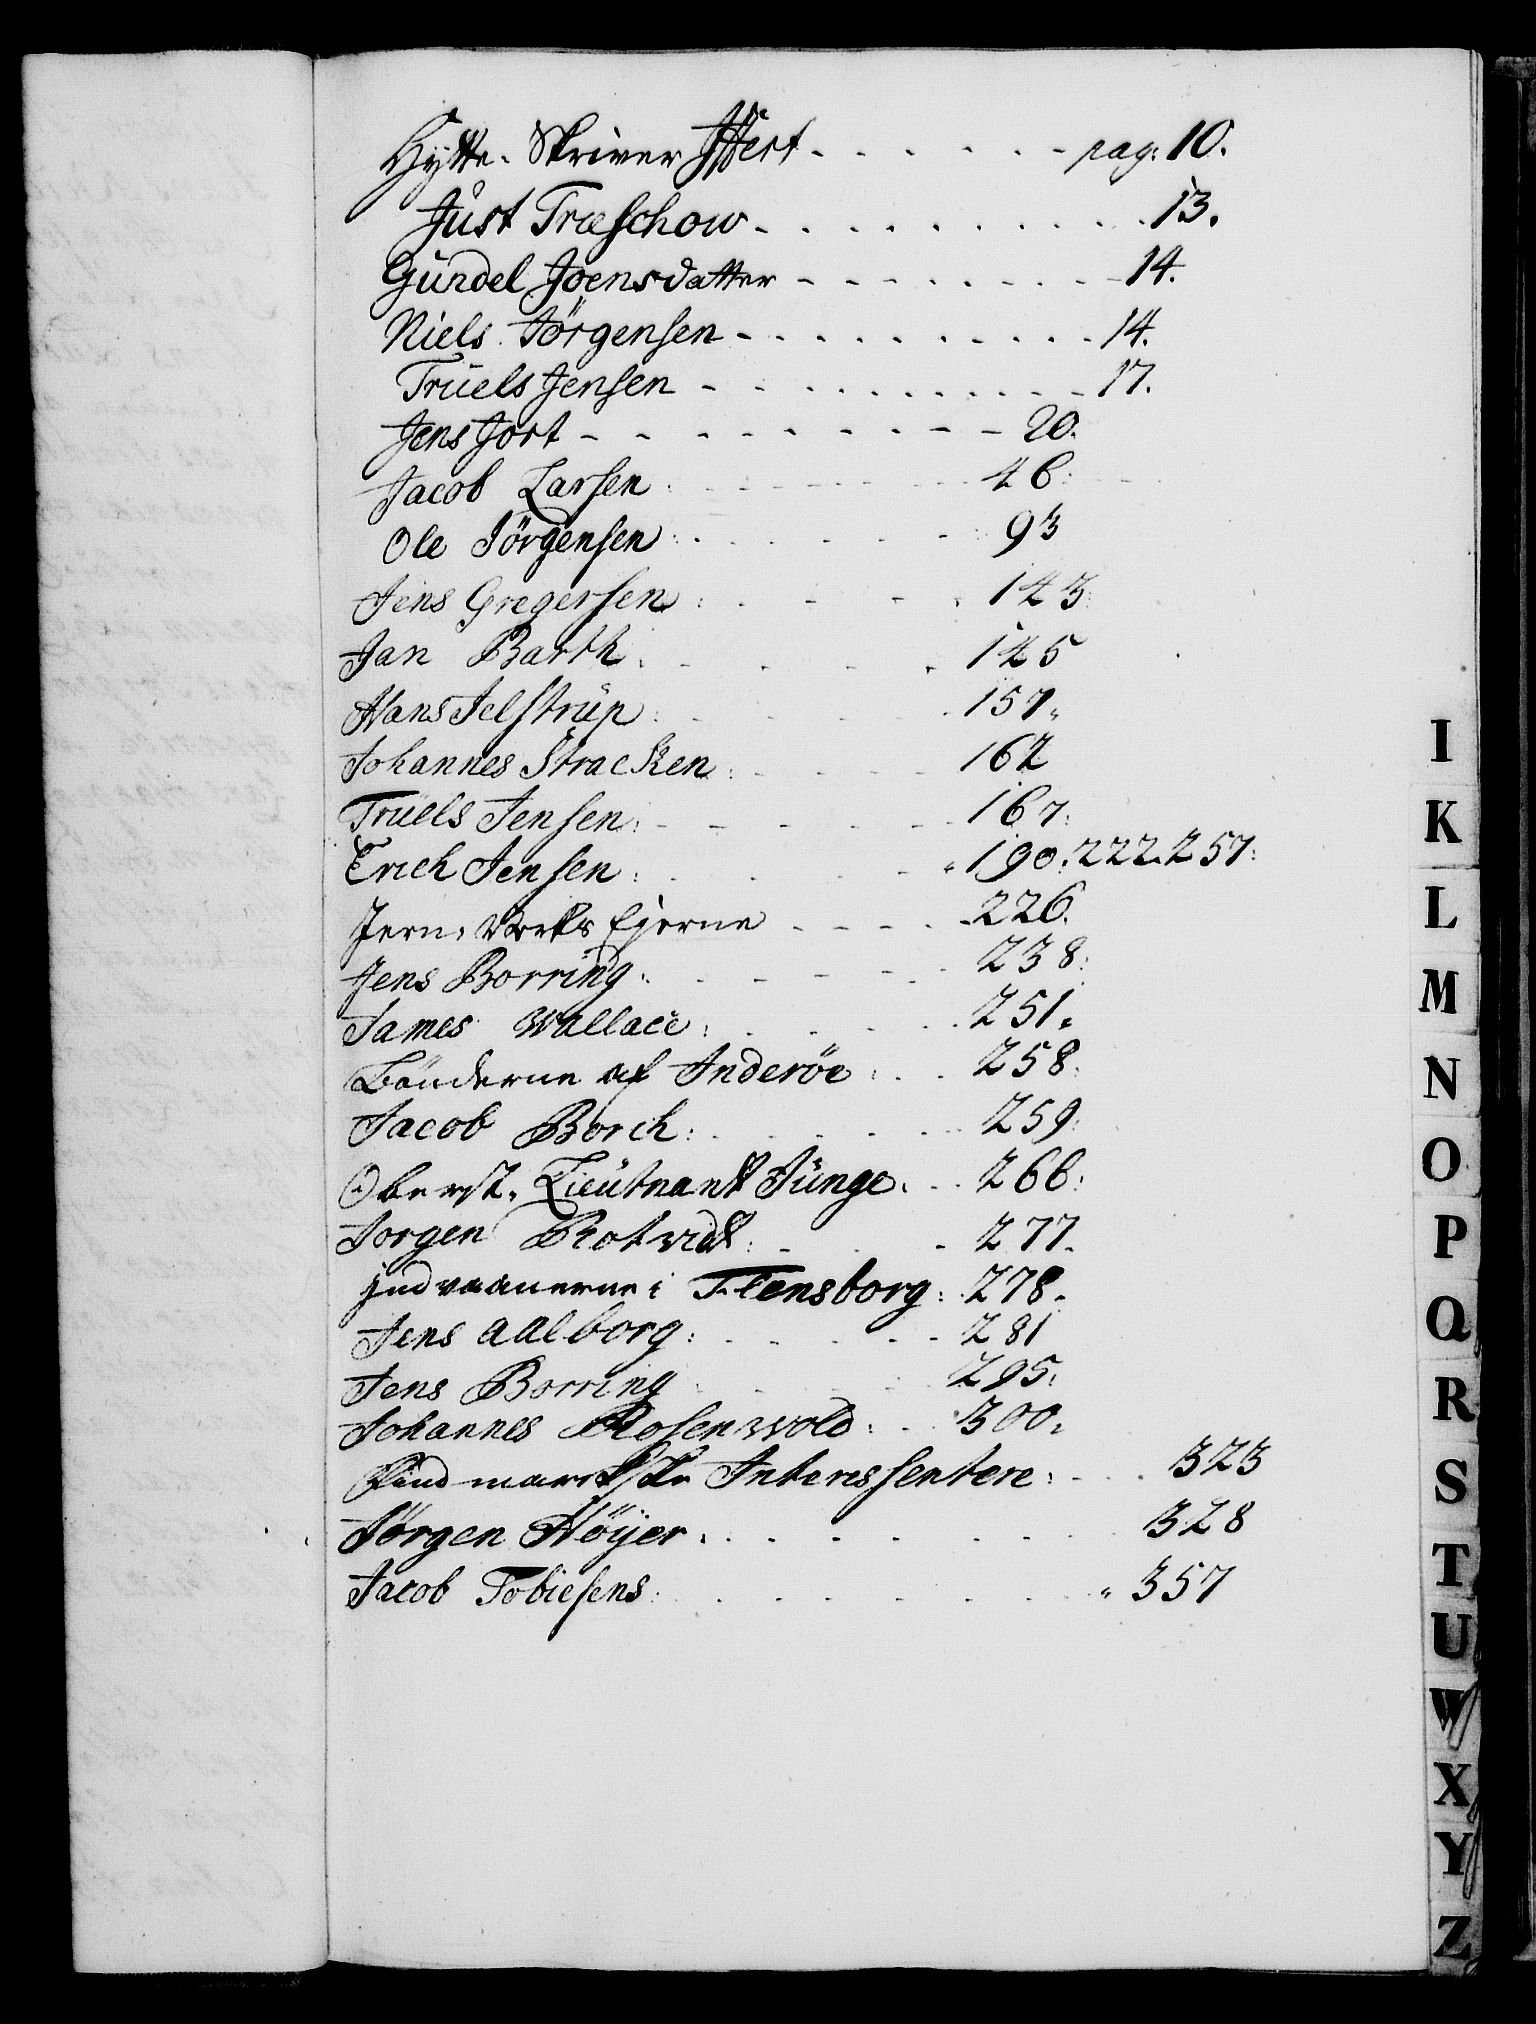 Hytte-Skriver Iffert - - - - - - pag: 10.
Just Træschow - - - - - - - - - 13.
Gundel Joensdatter - - - - - - - - 14.
Niels Jörgensen - - - - - - - - - 14.
Truels Jensen - - - - - - - - - 17.
Jens Jort - - - - - - - - - 20.
Jacob Larsen: - - - - - - 46:
Ole Jörgensen: - - - - - 93
Jens Gregersen: - - - - 143:
Jan Barth: - - - - 145
Hans Jelstrup: - - - - 157.
Johannes Stracken: - - - - 162
Truels Jensen: - - - - - 167:
Erich Jensen: - - - - 190. 222. 257:
Jern-Verks Ejerne - - - - 226.
Jens Borring: - - - - - 238:
James Wallace: - - - - 251.
Bönderne af Inderöe: - - 258:
Jacob Borch: - - - - 259:
Oberst-Lieutnant Junge: - - 266:
Jorgen Rotvidt: - - - 277.
Indvaanerne i Flensborg: 278.
Jens Aalborg: - - - - 281
Jens Borring - - - - 295:
Johannes Rosenwold: - - 300:
Find-marckske Interessentere: - - 323
Jörgen Höyer: - - - - - - - 328
Jacob Tobiesens: - - - - - - - 357
I
K
L
M
N
O
P
Q
R
S
T
U
W
X
Y
Z